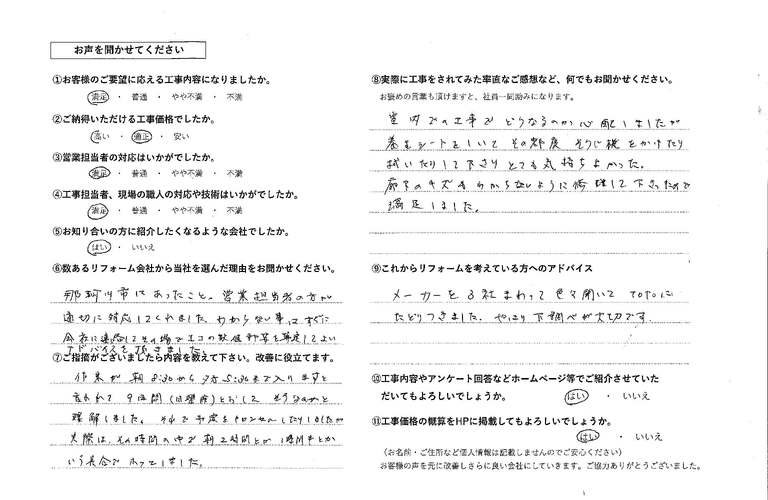 お声を聞かせてください
①お客様のご要望に応える工事内容になりましたか。
満足 ・ 普通 ・ やや不満 ・ 不満
②ご納得いただける工事価格でしたか。
高い ・ 適正 ・ 安い
③営業担当者の対応はいかがでしたか。
満足 ・ 普通 ・ やや不満 ・ 不満
④工事担当者、現場の職人の対応や技術はいかがでしたか。
満足 ・ 普通 ・ やや不満 ・ 不満
⑤お知り合いの方に紹介したくなるような会社でしたか。
はい ・ いいえ
⑥数あるリフォーム会社から当社を選んだ理由をお聞かせください。
那珂川市にあったこと。営業担当者の方が
適切に対応してくれました。わからない事はすぐに
会社に連絡してその場でエコの助成金等を算定してよい
アドバイスを頂きました
⑦ご指摘がございましたら内容を教えて下さい。改善に役立てます。
作業が朝8:30から夕方5:30まで入りますと
言われて9時間(休憩除)とおして そうなのかと
理解しました。それで予定をキャンセルしたりしましたが
実際は、その時間の中で朝2時間とか1時間半とか
いう具合で 終ってました。
⑧実際に工事をされてみた率直なご感想など、何でもお聞かせください。
お褒めの言葉も頂けますと、社員一同励みになります。
室内での工事で どうなるのか心配しましたが
養生シートをしいて その都度 そうじ機をかけたり
拭いたりして下さり とても気持ちよかった。
廊下のキズもわからないように修理して下さったので
満足しました。
⑨これからリフォームを考えている方へのアドバイス
メーカーを3社まわって色々聞いてTOTOに
たどりつきました。やはり下調べが大切です。
⑩工事内容やアンケート回答などホームページ等でご紹介させていた
だいてもよろしいでしょうか。 はい ・ いいえ
⑪工事価格の概算をHPに掲載してもよろしいでしょうか。
はい ・ いいえ
(お名前・ご住所など個人情報は記載しませんのでご安心ください)
お客様の声を元に改善しさらに良い会社にしていきます。ご協力ありがとうございました。